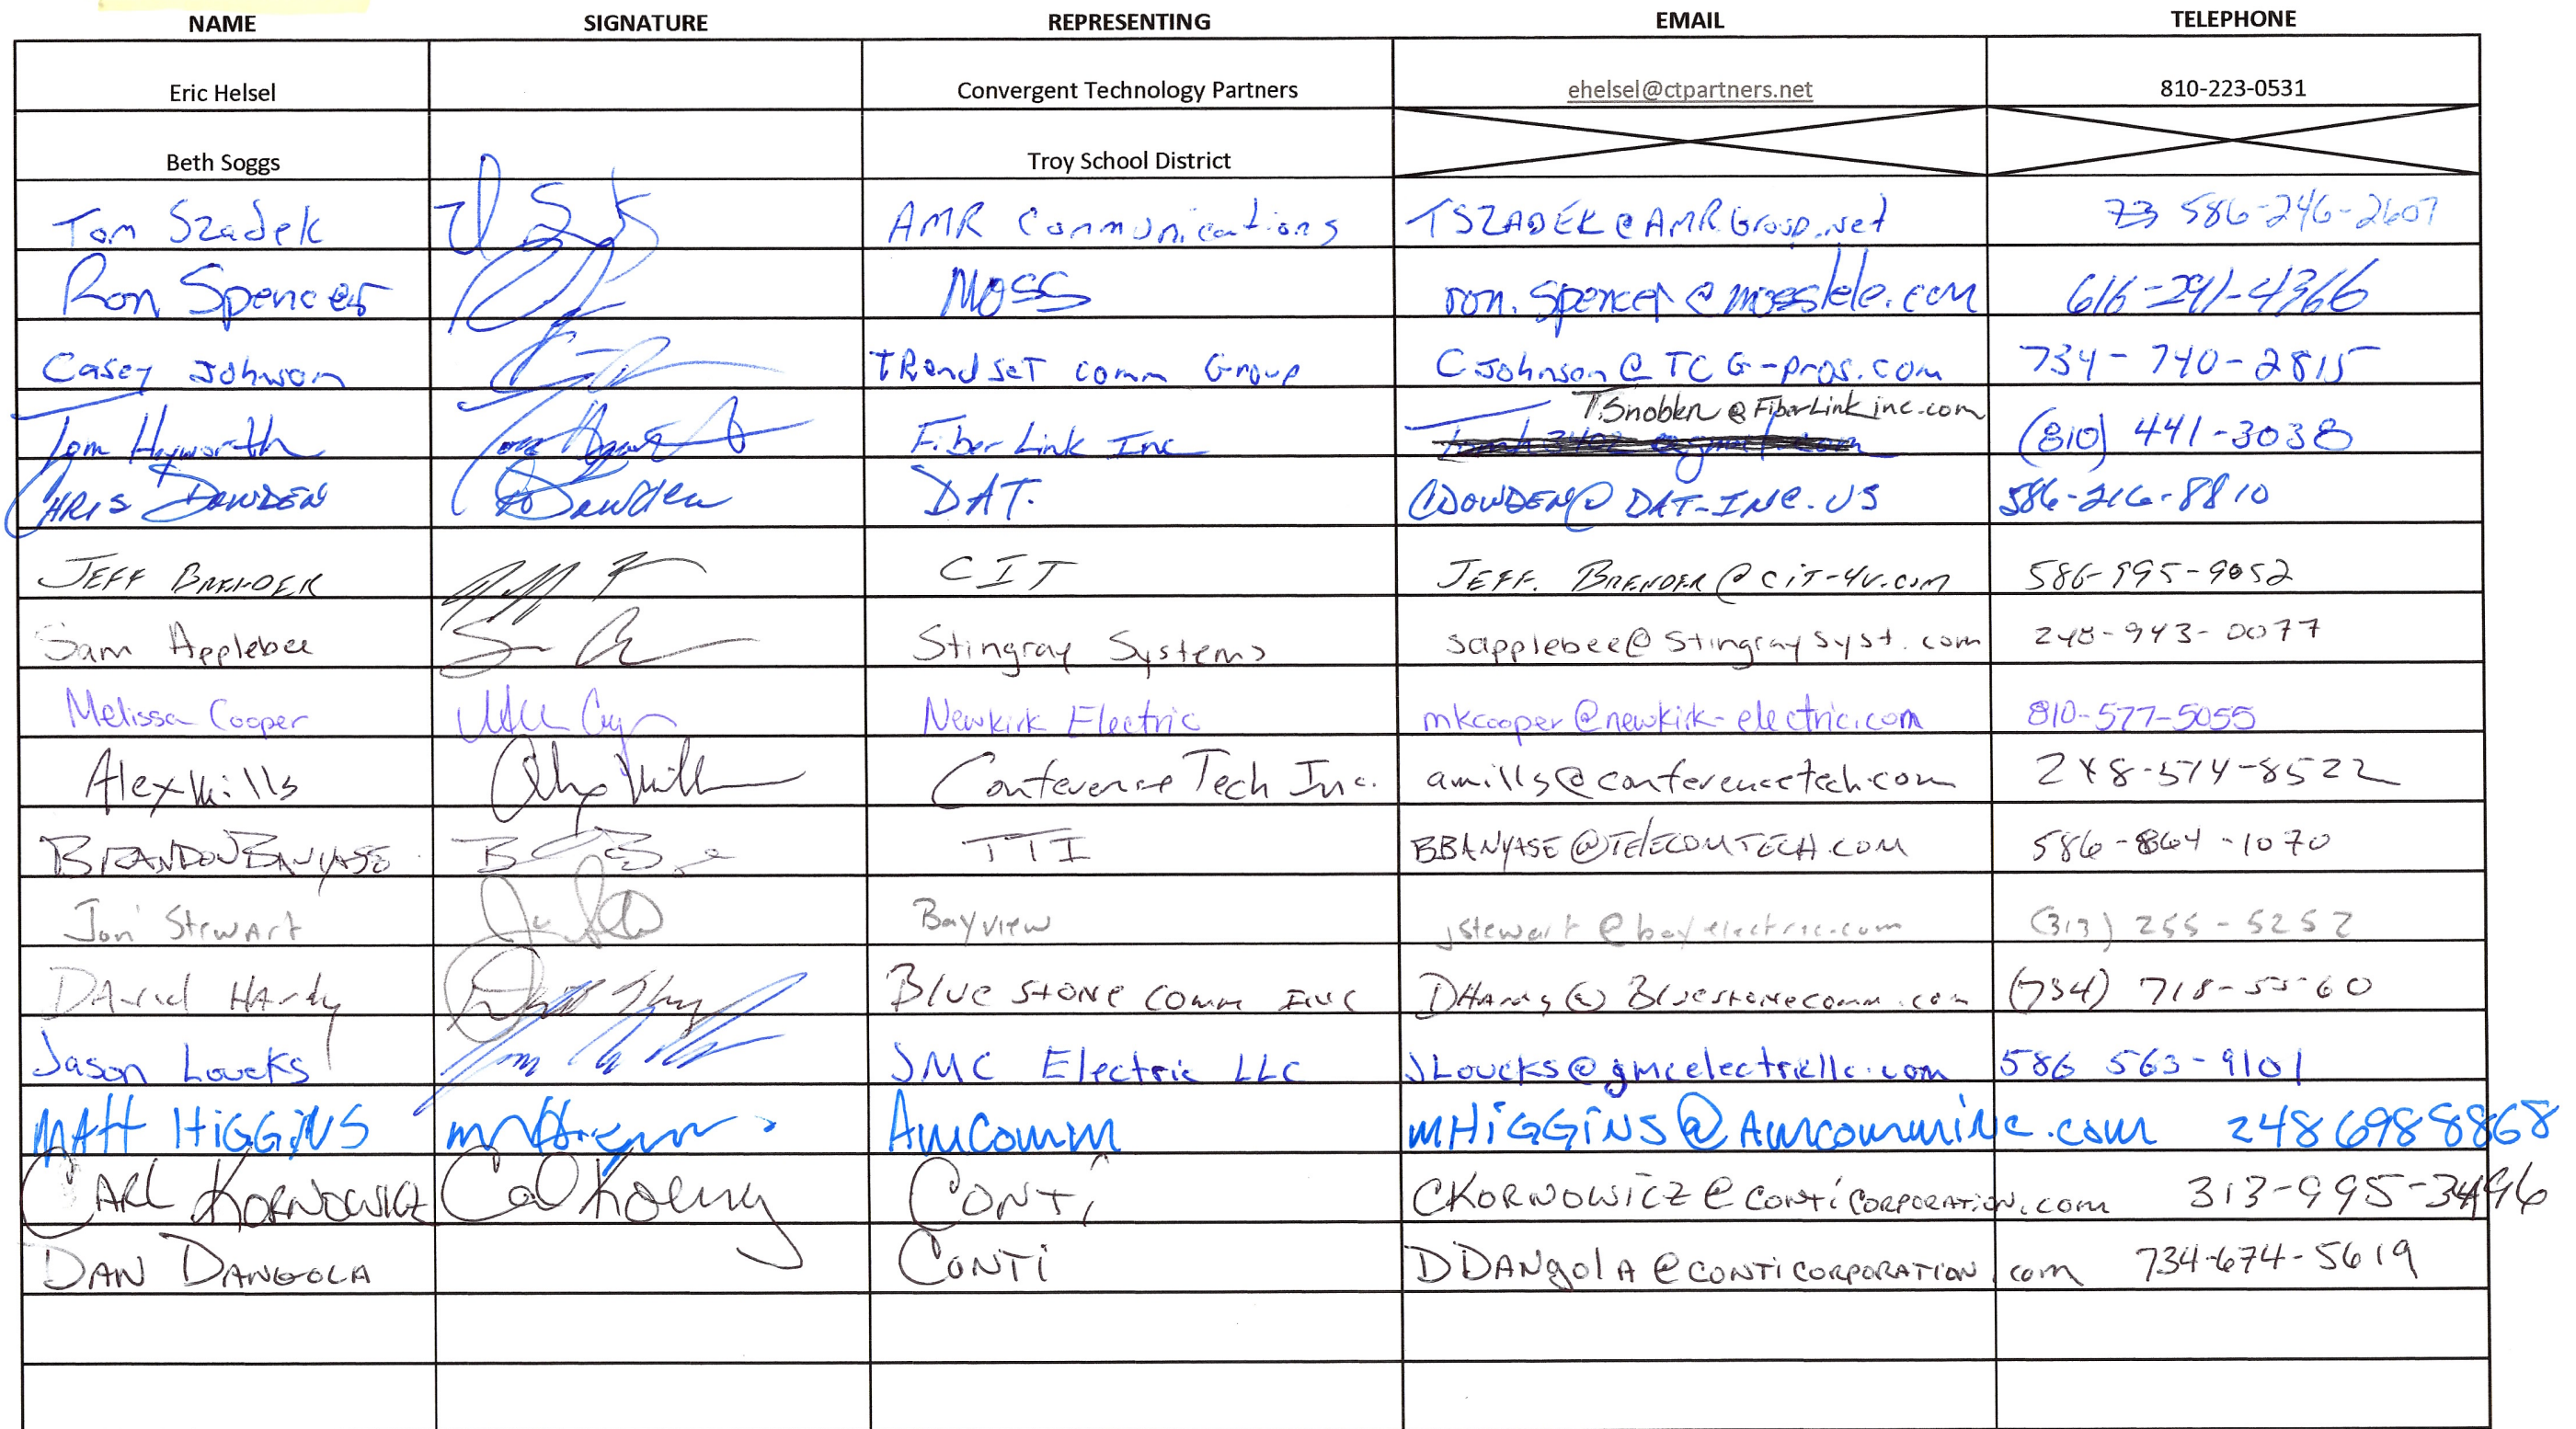 NAME SIGNATURE REPRESENTING EMAIL TELEPHONE
Eric Helsel Convergent Technology Partners ehelsel@ctpartners.net 810-223-0531
Beth Soggs Troy School District
Tom Szadek AMR Communications TSZADEK@AMRGroup.net 586-246-2607
Ron Spencer MOSS ron.spencer@mosstele.com 616-291-4366
Casey Johnson TRendset comm Group CJohnson@TCG-pros.com 734-740-2815
TSnoblen@FiberLinkinc.com
Tom Hayworth FiberLink Inc (810) 441-3038
CHRIS DOWDEN DAT. CDOWDEN@DAT-INC.US 586-216-8810
JEFF BRENDER CIT JEFF.BRENDER@CIT-4U.COM 586-995-9052
Sam Applebee Stingray Systems sapplebee@Stingraysyst.com 248-943-0077
Melissa Cooper Newkirk Electric mkcooper@newkirk-electric.com 810-577-5055
Alex Mills Conference Tech Inc. amills@conferencetech.com 248-574-8522
BRANDON BANYASE TTI BBANYASE@TELECOMTECH.COM 586-864-1070
Jon Stewart Bayview jstewart@bayelectric.com (313) 255-5252
DAvid HArdy Blue STONE Comm INC DHArdy@Bluestonecomm.com (734) 718-5560
Jason Loucks JMC Electric LLC JLoucks@gmcelectricllc.com 586 563-9101
MATT HIGGINS AmComm MHIGGINS@Amcomminc.com 248 698 8868
CARL KORNOWICZ CONTi CKORNOWICZ@CONTiCORPORATiON.com 313-995-3496
DAN DANGOLA CONTi DDANgolA@CONTiCORPORATION.com 734-674-5619